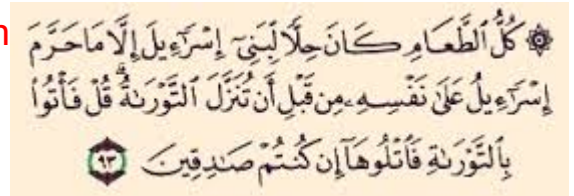 ۞ كُلُّ ٱلطَّعَامِ كَانَ حِلًّا لِّبَنِىٓ إِسْرَٰٓءِيلَ إِلَّا مَا حَرَّمَ
إِسْرَٰٓءِيلُ عَلَىٰ نَفْسِهِۦ مِن قَبْلِ أَن تُنَزَّلَ ٱلتَّوْرَىٰةُ ۗ قُلْ فَأْتُوا۟
بِٱلتَّوْرَىٰةِ فَٱتْلُوهَآ إِن كُنتُمْ صَـٰدِقِينَ ٩٣